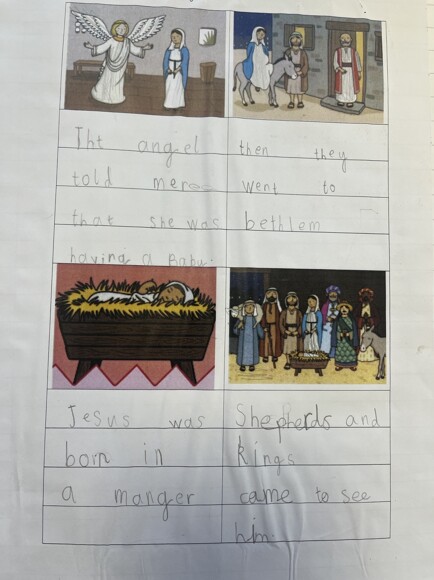 Tht angel
told mere
that she was
having a Baby.
then they
went to
bethlem
Jesus was
born in
a manger
Shepherds and
kings
came to see
him.